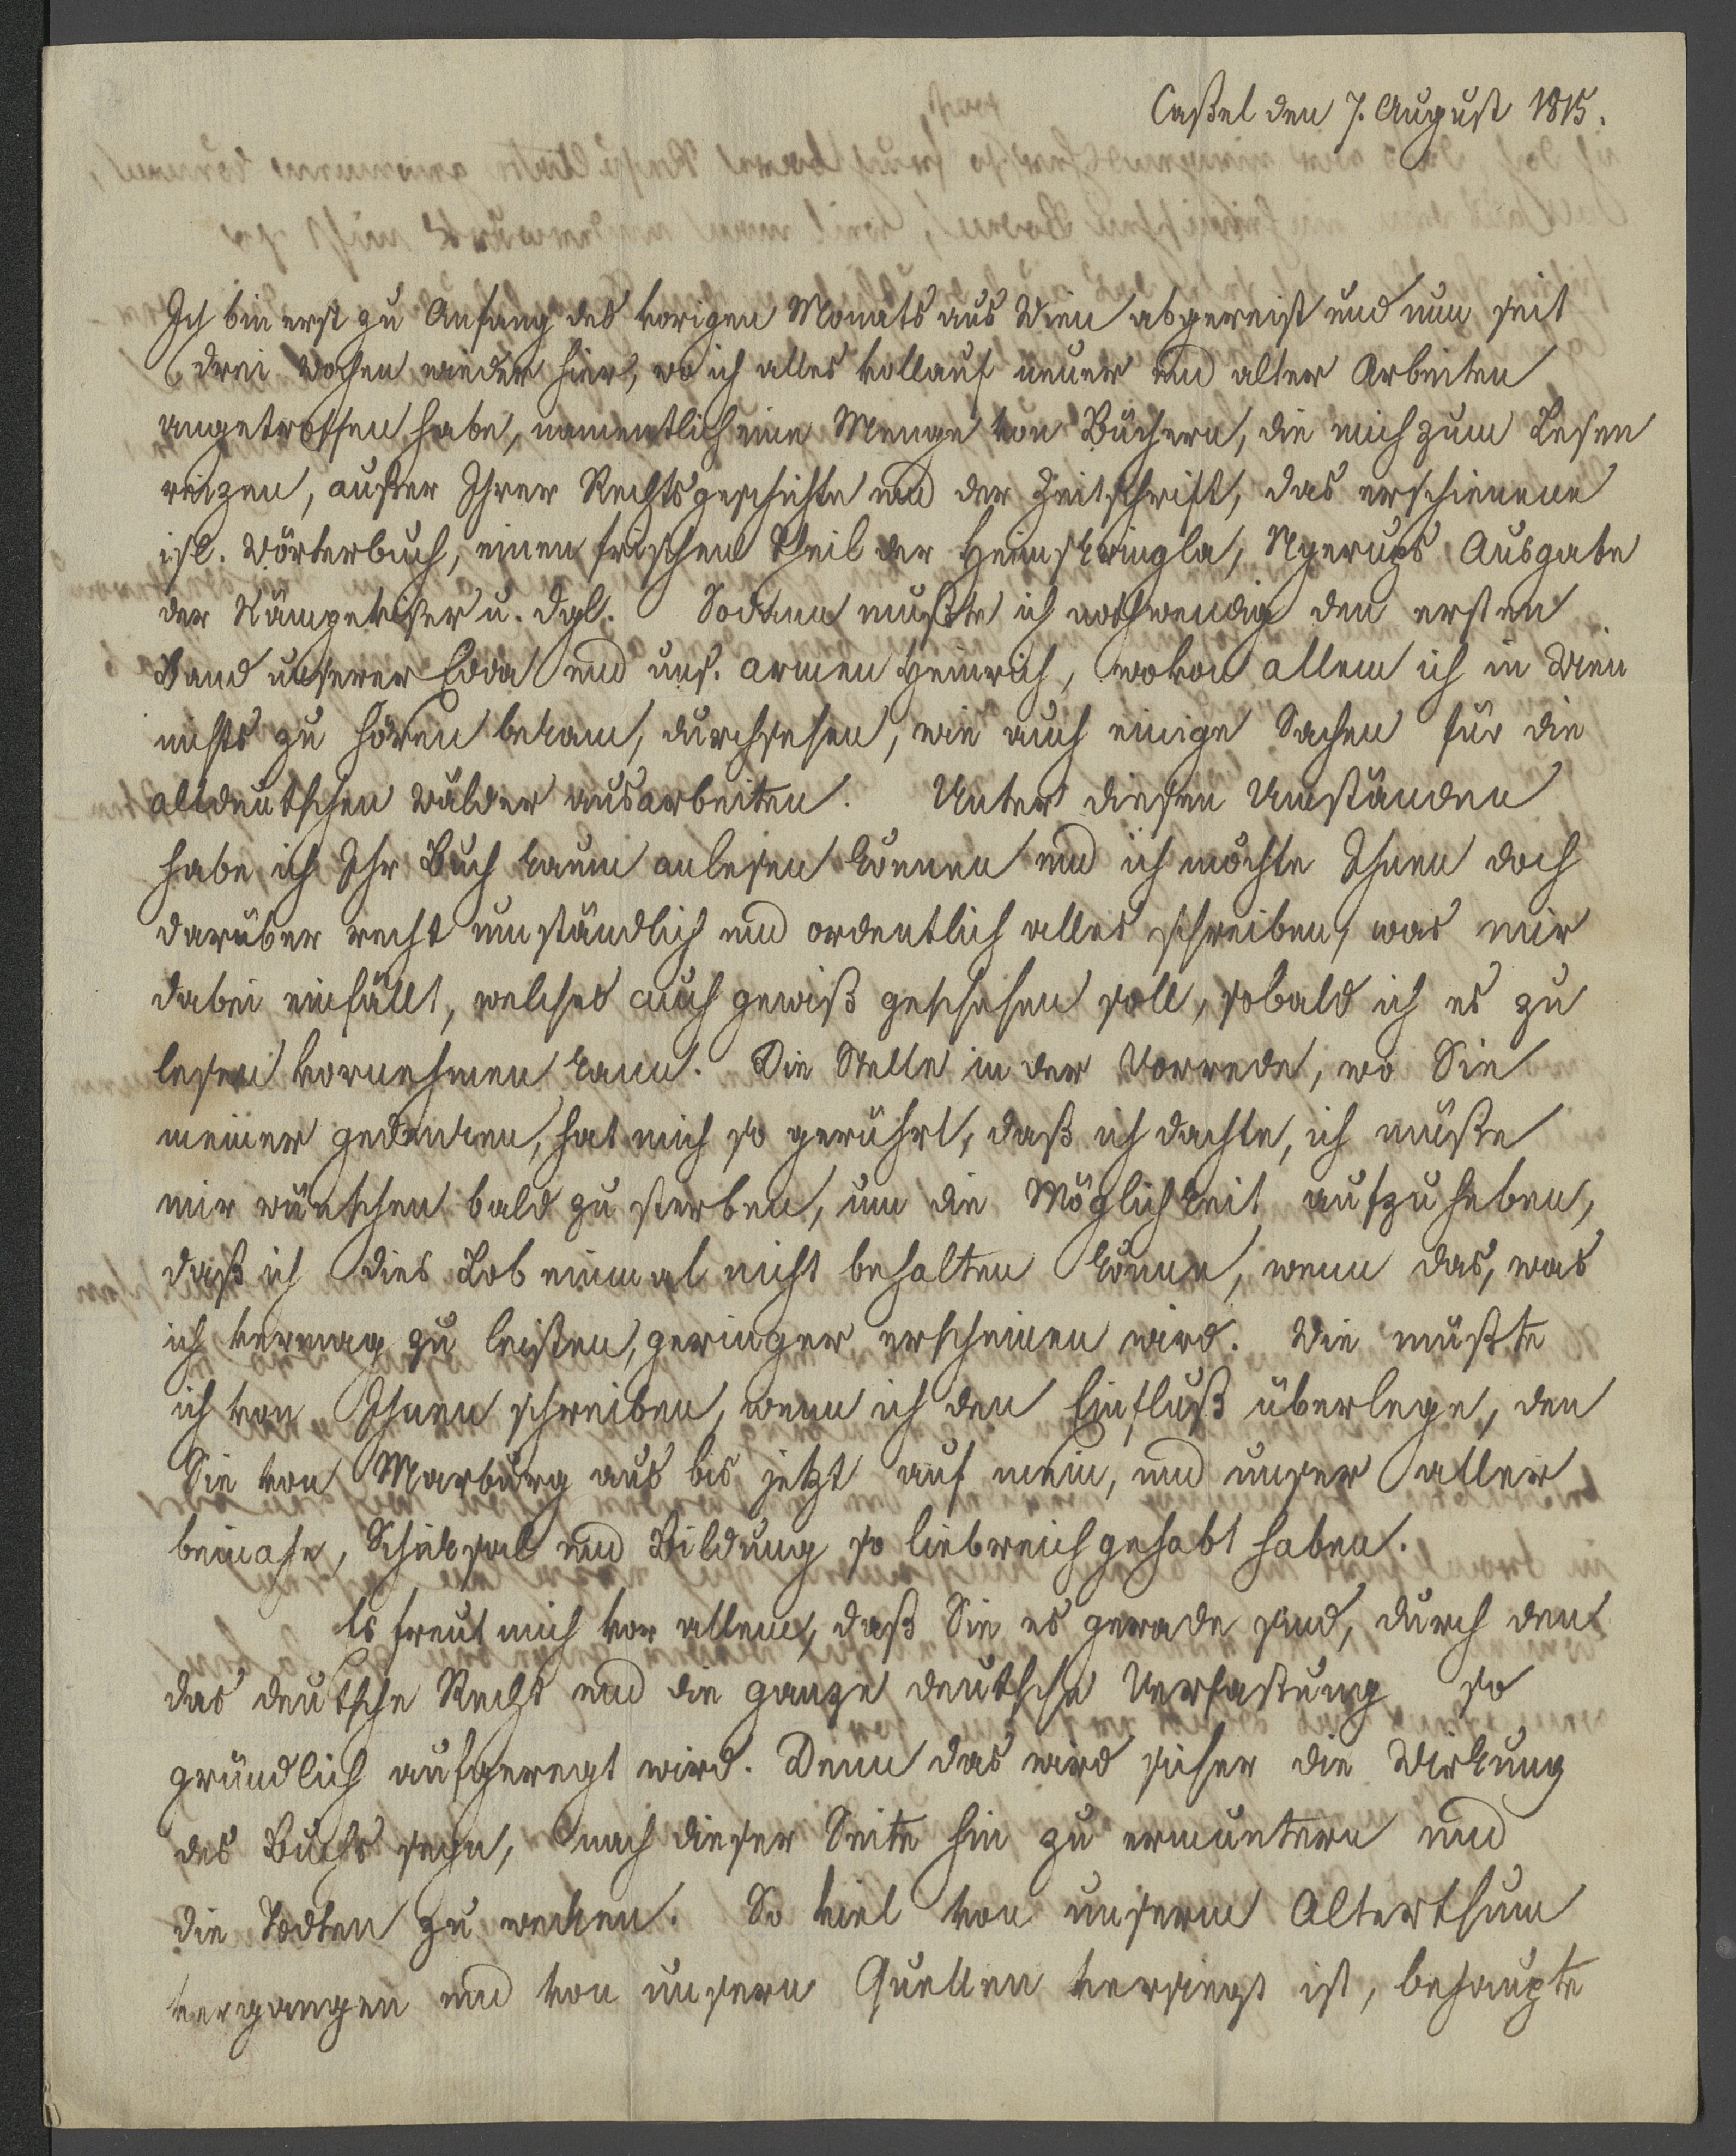 Caßel den 7. August 1815.
Ich bin erst zu Anfang des vorigen Monats aus Wien abgereist und nun seit
drei Wochen wieder hier, wo ich alles vollauf neuer und alter Arbeiten
angetroffen habe, namentlich eine Menge von Büchern, die mich zum Lesen
reizen, außer Ihrer Rechtsgeschichte und der Zeitschrift, das erschienene
isl. Wörterbuch, einen frischen Theil der Heimskringla, Nyerups Ausgabe
der Kämpeviser u. dgl. Sodann mußte ich nothwendig den ersten
Band unserer Edda und uns. armen Heinrich, wovon allem ich in Wien
nichts zu hören bekam, durchsehen, wie auch einige Sachen für die
altdeutschen Wälder ausarbeiten. Unter diesen Umständen
habe ich Ihr Buch kaum anlesen können und ich möchte Ihnen doch
darüber recht umständlich und ordentlich alles schreiben, was mir
dabei einfällt, welches auch gewiß geschehen soll, sobald ich es zu
lesen vornehmen kann. Die Stelle in der Vorrede, wo Sie
meiner gedenken, hat mich so gerührt, daß ich dachte, ich müßte
mir wünschen bald zu sterben, um die Möglichkeit aufzuheben,
daß ich dies Lob einmal nicht behalten könne, wenn das, was
ich vermag zu leisten, geringer erscheinen wird. Wie müßte
ich von Ihnen schreiben, wenn ich den Einfluß überlege, den
Sie von Marburg aus bis jetzt auf mein, und unser aller
beinahe, Schicksal und Bildung so liebreich gehabt haben.
Es freut mich vor allem, daß Sie es gerade sind, durch den
das deutsche Recht und die ganze deutsche Verfaßung so
gründlich aufgeregt wird. Denn das wird sicher die Wirkung
des Buchs seyn, nach dieser Seite hin zu ermuntern und
die Todten zu wecken. So viel von unserm Alterthum
vergangen und von unsern Quellen versiegt ist, behaupte